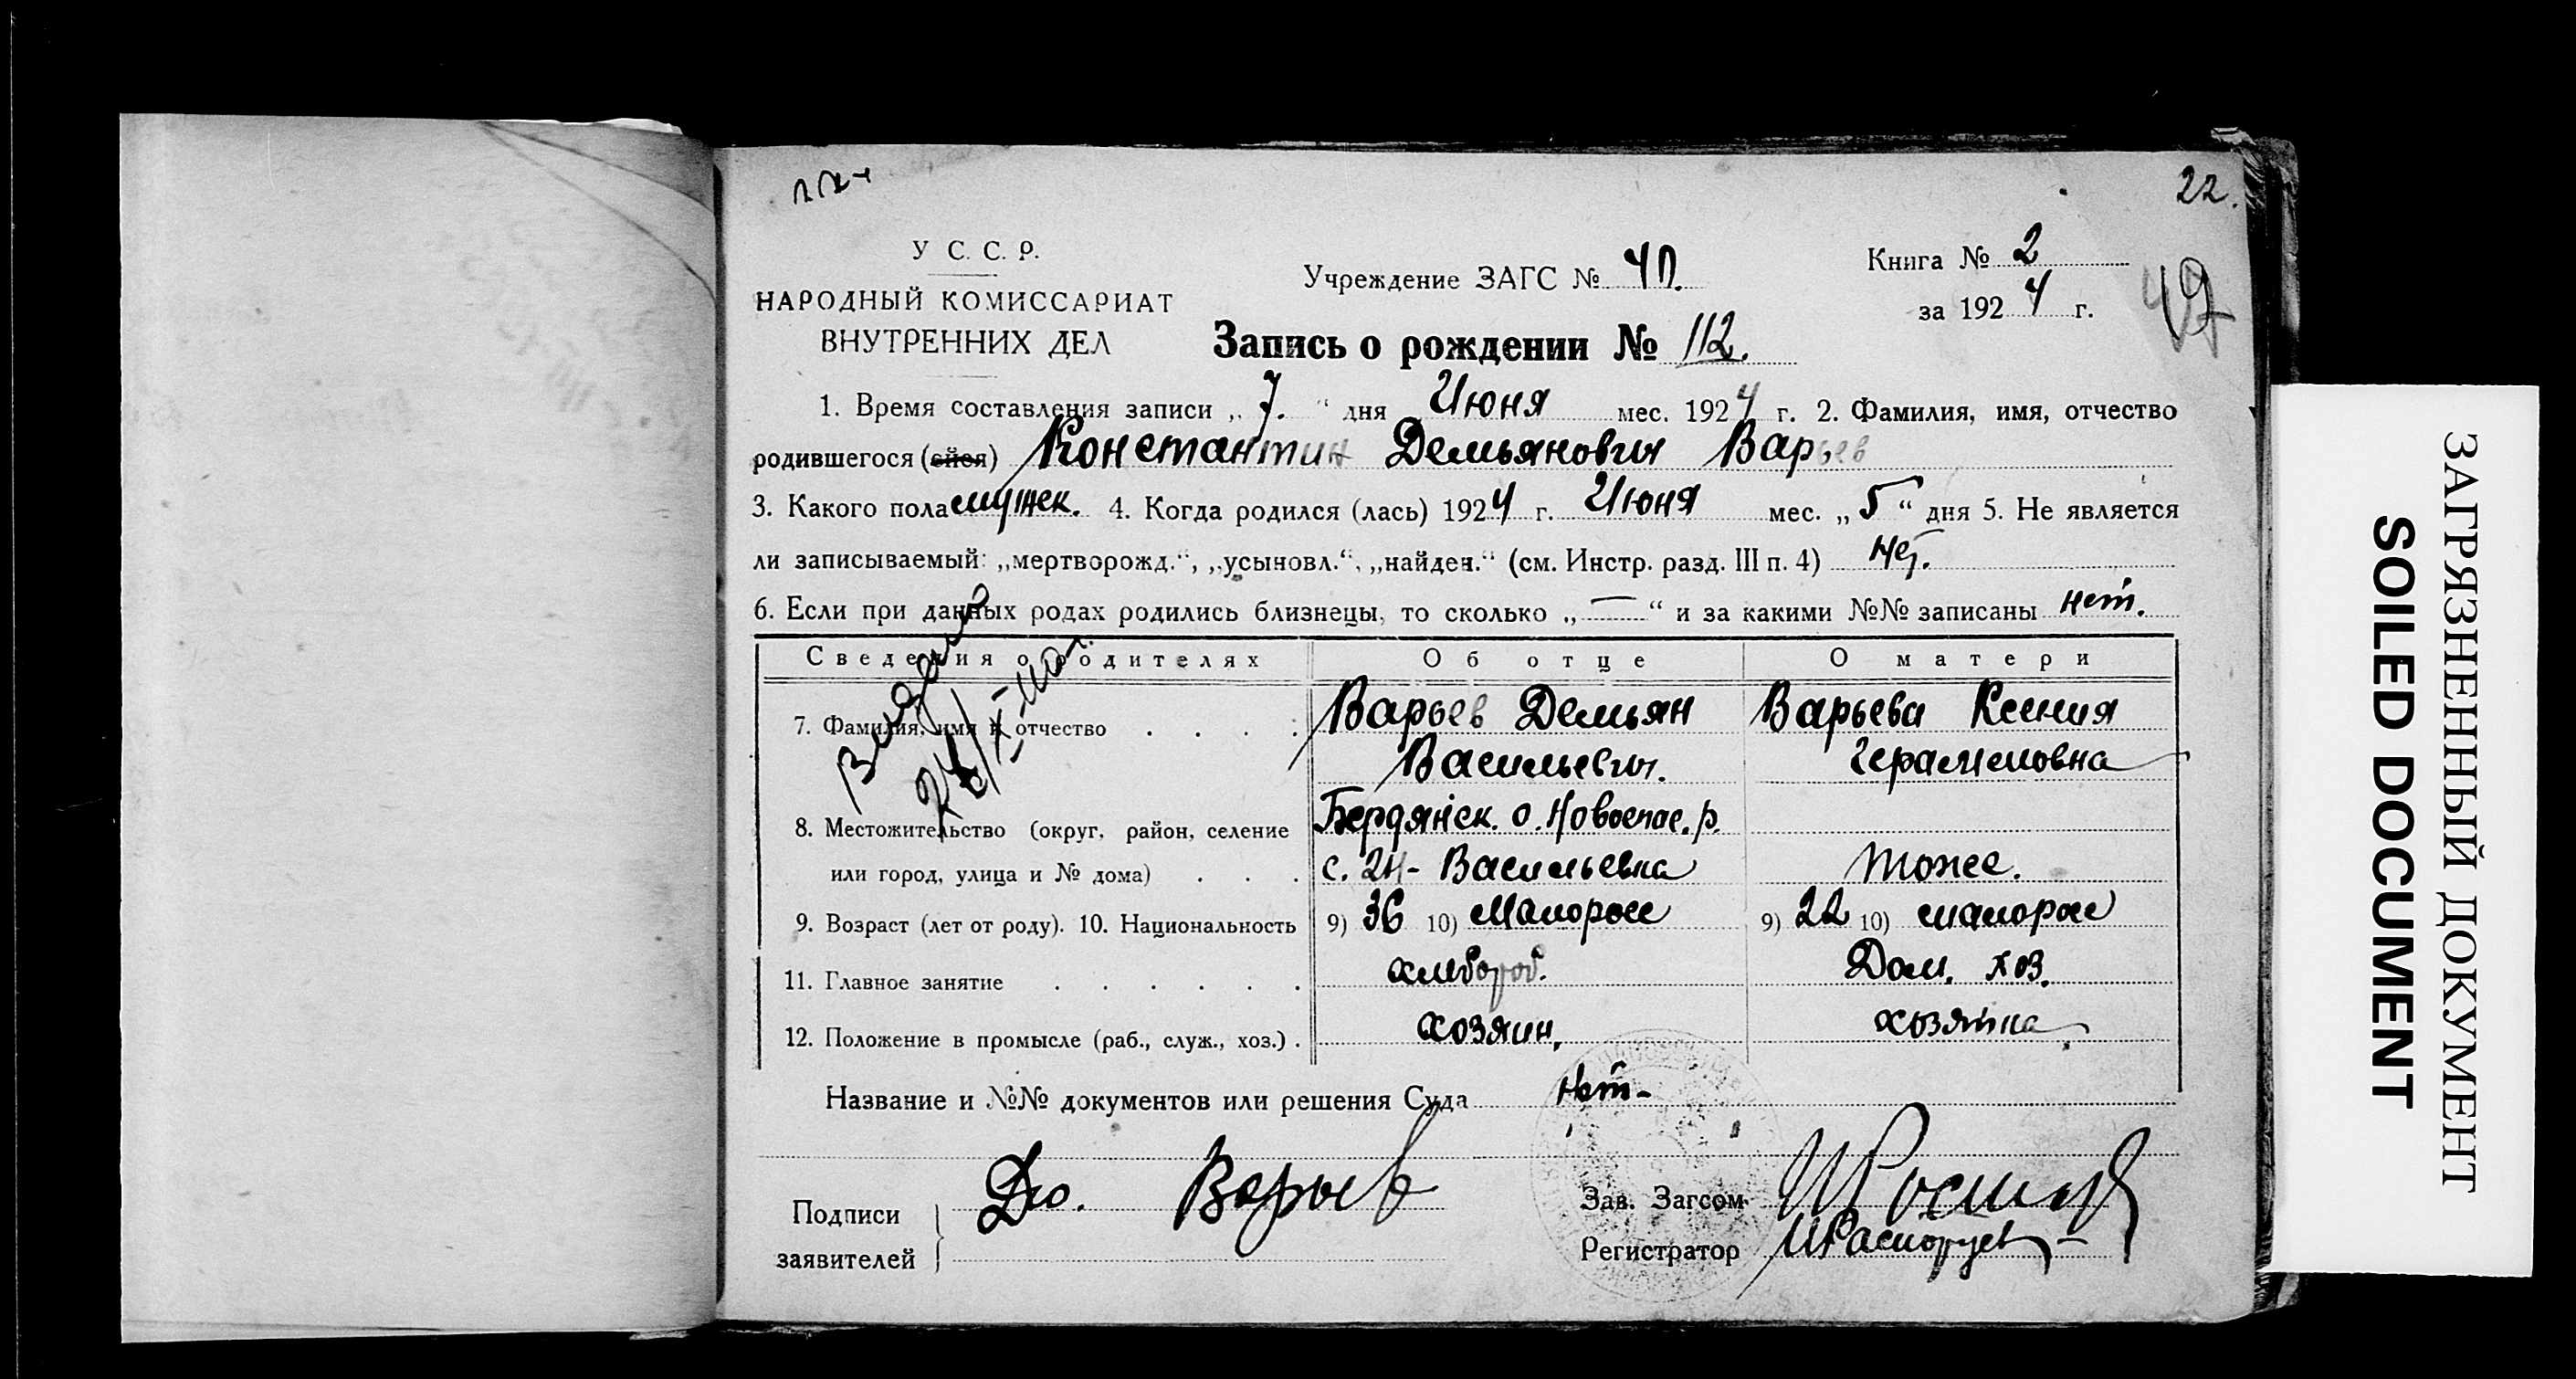 22.
У С. С. Р.
НАРОДНЫЙ КОМИССАРИАТ
ВНУТРЕННИХ ДЕЛ
Учреждение ЗАГС №
Книга № 2
за 1924 г.
Запись о рождении № 112.
1. Время составления записи „ 7. “ дня Июня мес. 1924 г. 2. Фамилия, имя, отчество
родившегося (ейся) Константин Демьянович Варьев
3. Какого пола мужск. 4. Когда родился (лась) 1924 г. Июня мес. „ 5 “ дня 5. Не является
ли записываемый: „мертворожд.“, „усыновл.“, „найден.“ (см. Инстр. разд. III п. 4) нет.
6. Если при данных родах родились близнецы, то сколько „ — “ и за какими №№ записаны нет.
Сведения о родителях Об отце О матери
7. Фамилия, имя и отчество . . . . Варьев Демьян Варьева Ксения
Васильевич.
8. Местожительство (округ, район, селение Бердянск. о. Новоспас. р.
или город, улица и № дома) . . . с. 2н- Васильевка тоже.
9. Возраст (лет от роду). 10. Национальность 9) 36 10) Малоросс 9) 22 10) малоросс
11. Главное занятие . . . . . . хлебороб. Дом. хоз.
12. Положение в промысле (раб., служ., хоз.) . хозяин, хозяйка
Название и №№ документов или решения Суда нет-
Подписи
заявителей
Варьев
Зав. Загсом
Регистратор
ЗАГРЯЗНЕННЫЙ ДОКУМЕНТ
SOILED DOCUMENT